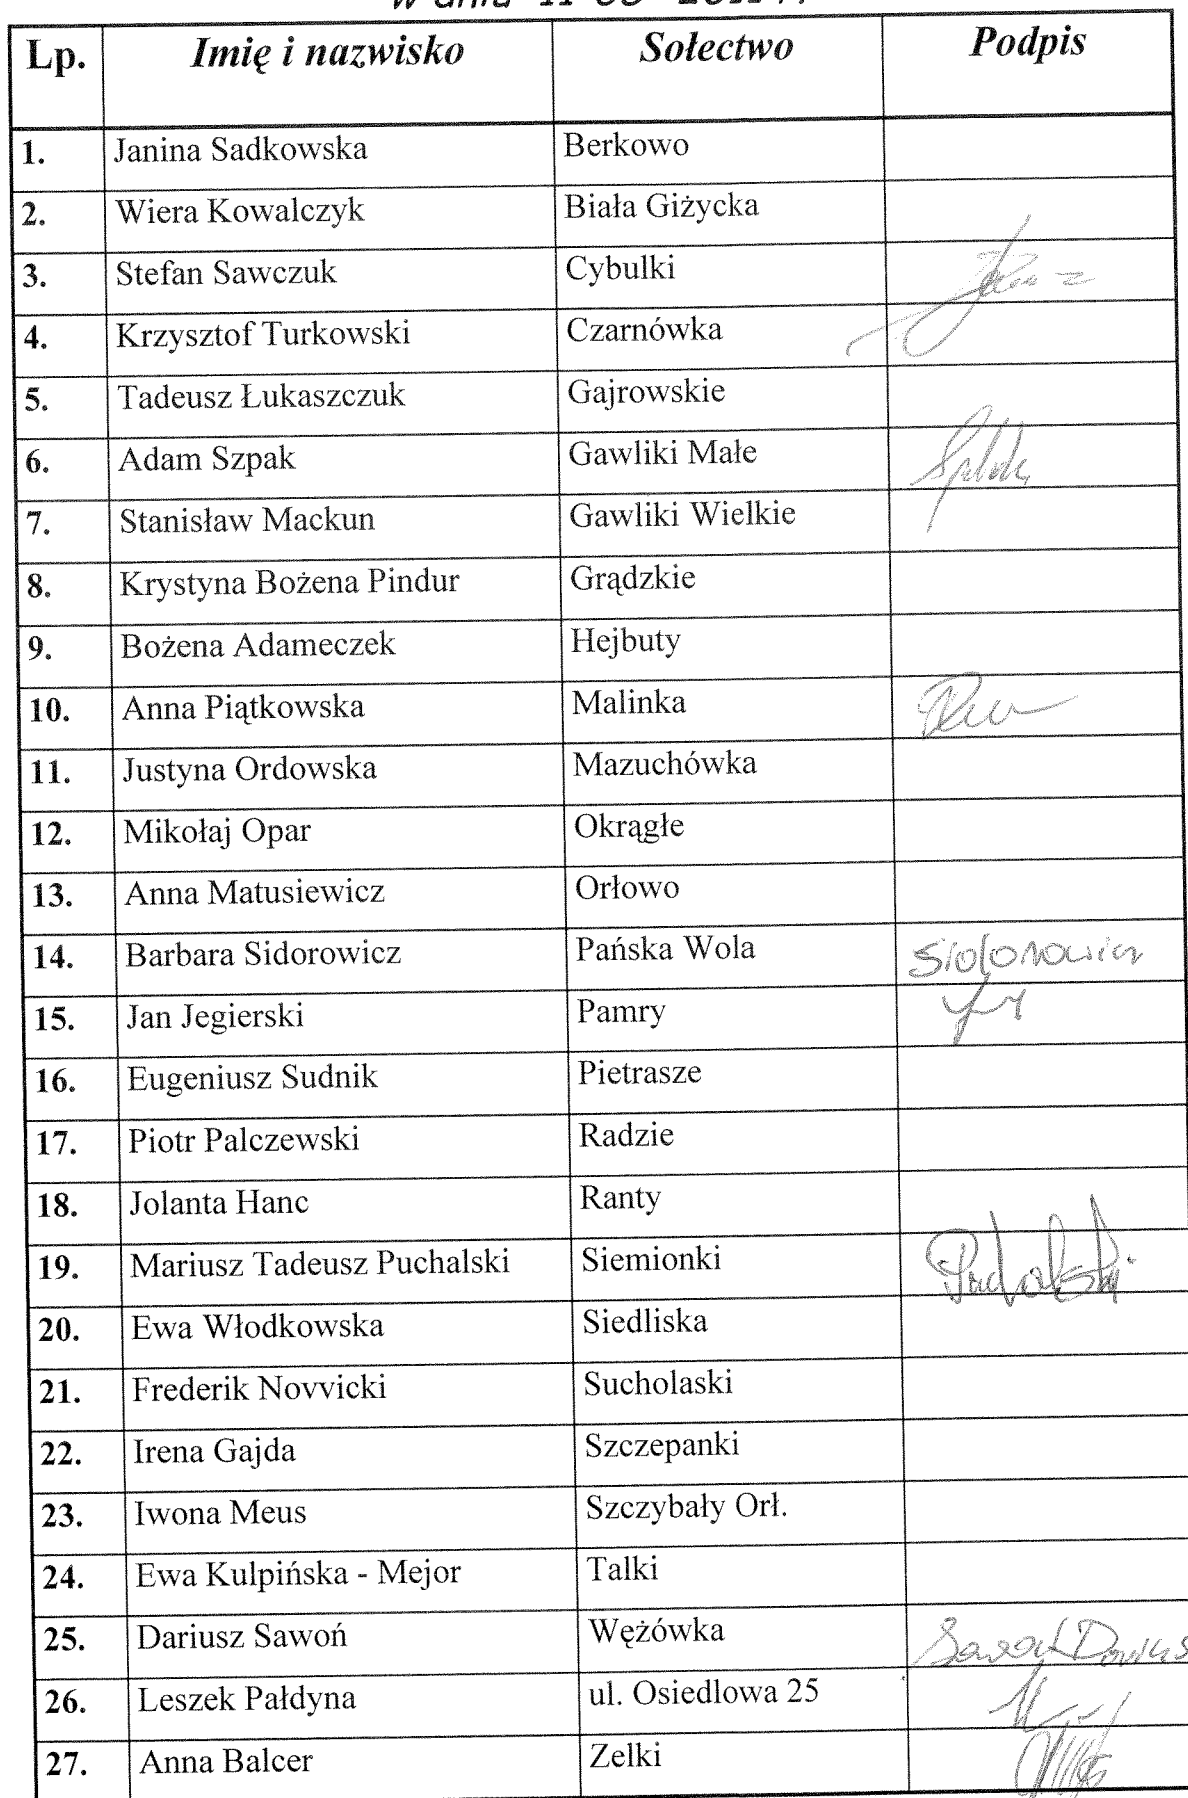 w dniu
Lp. Imię i nazwisko Sołectwo Podpis
1. Janina Sadkowska Berkowo
2. Wiera Kowalczyk Biała Giżycka
3. Stefan Sawczuk Cybulki
4. Krzysztof Turkowski Czarnówka
5. Tadeusz Łukaszczuk Gajrowskie
6. Adam Szpak Gawliki Małe
7. Stanisław Mackun Gawliki Wielkie
8. Krystyna Bożena Pindur Grądzkie
9. Bożena Adameczek Hejbuty
10. Anna Piątkowska Malinka
11. Justyna Ordowska Mazuchówka
12. Mikołaj Opar Okrągłe
13. Anna Matusiewicz Orłowo
14. Barbara Sidorowicz Pańska Wola Sidorowicz
15. Jan Jegierski Pamry
16. Eugeniusz Sudnik Pietrasze
17. Piotr Palczewski Radzie
18. Jolanta Hanc Ranty
19. Mariusz Tadeusz Puchalski Siemionki Puchalski
20. Ewa Włodkowska Siedliska
21. Frederik Novvicki Sucholaski
22. Irena Gajda Szczepanki
23. Iwona Meus Szczybały Orł.
24. Ewa Kulpińska - Mejor Talki
25. Dariusz Sawoń Wężówka Sawoń Dariusz
26. Leszek Pałdyna ul. Osiedlowa 25
27. Anna Balcer Zelki